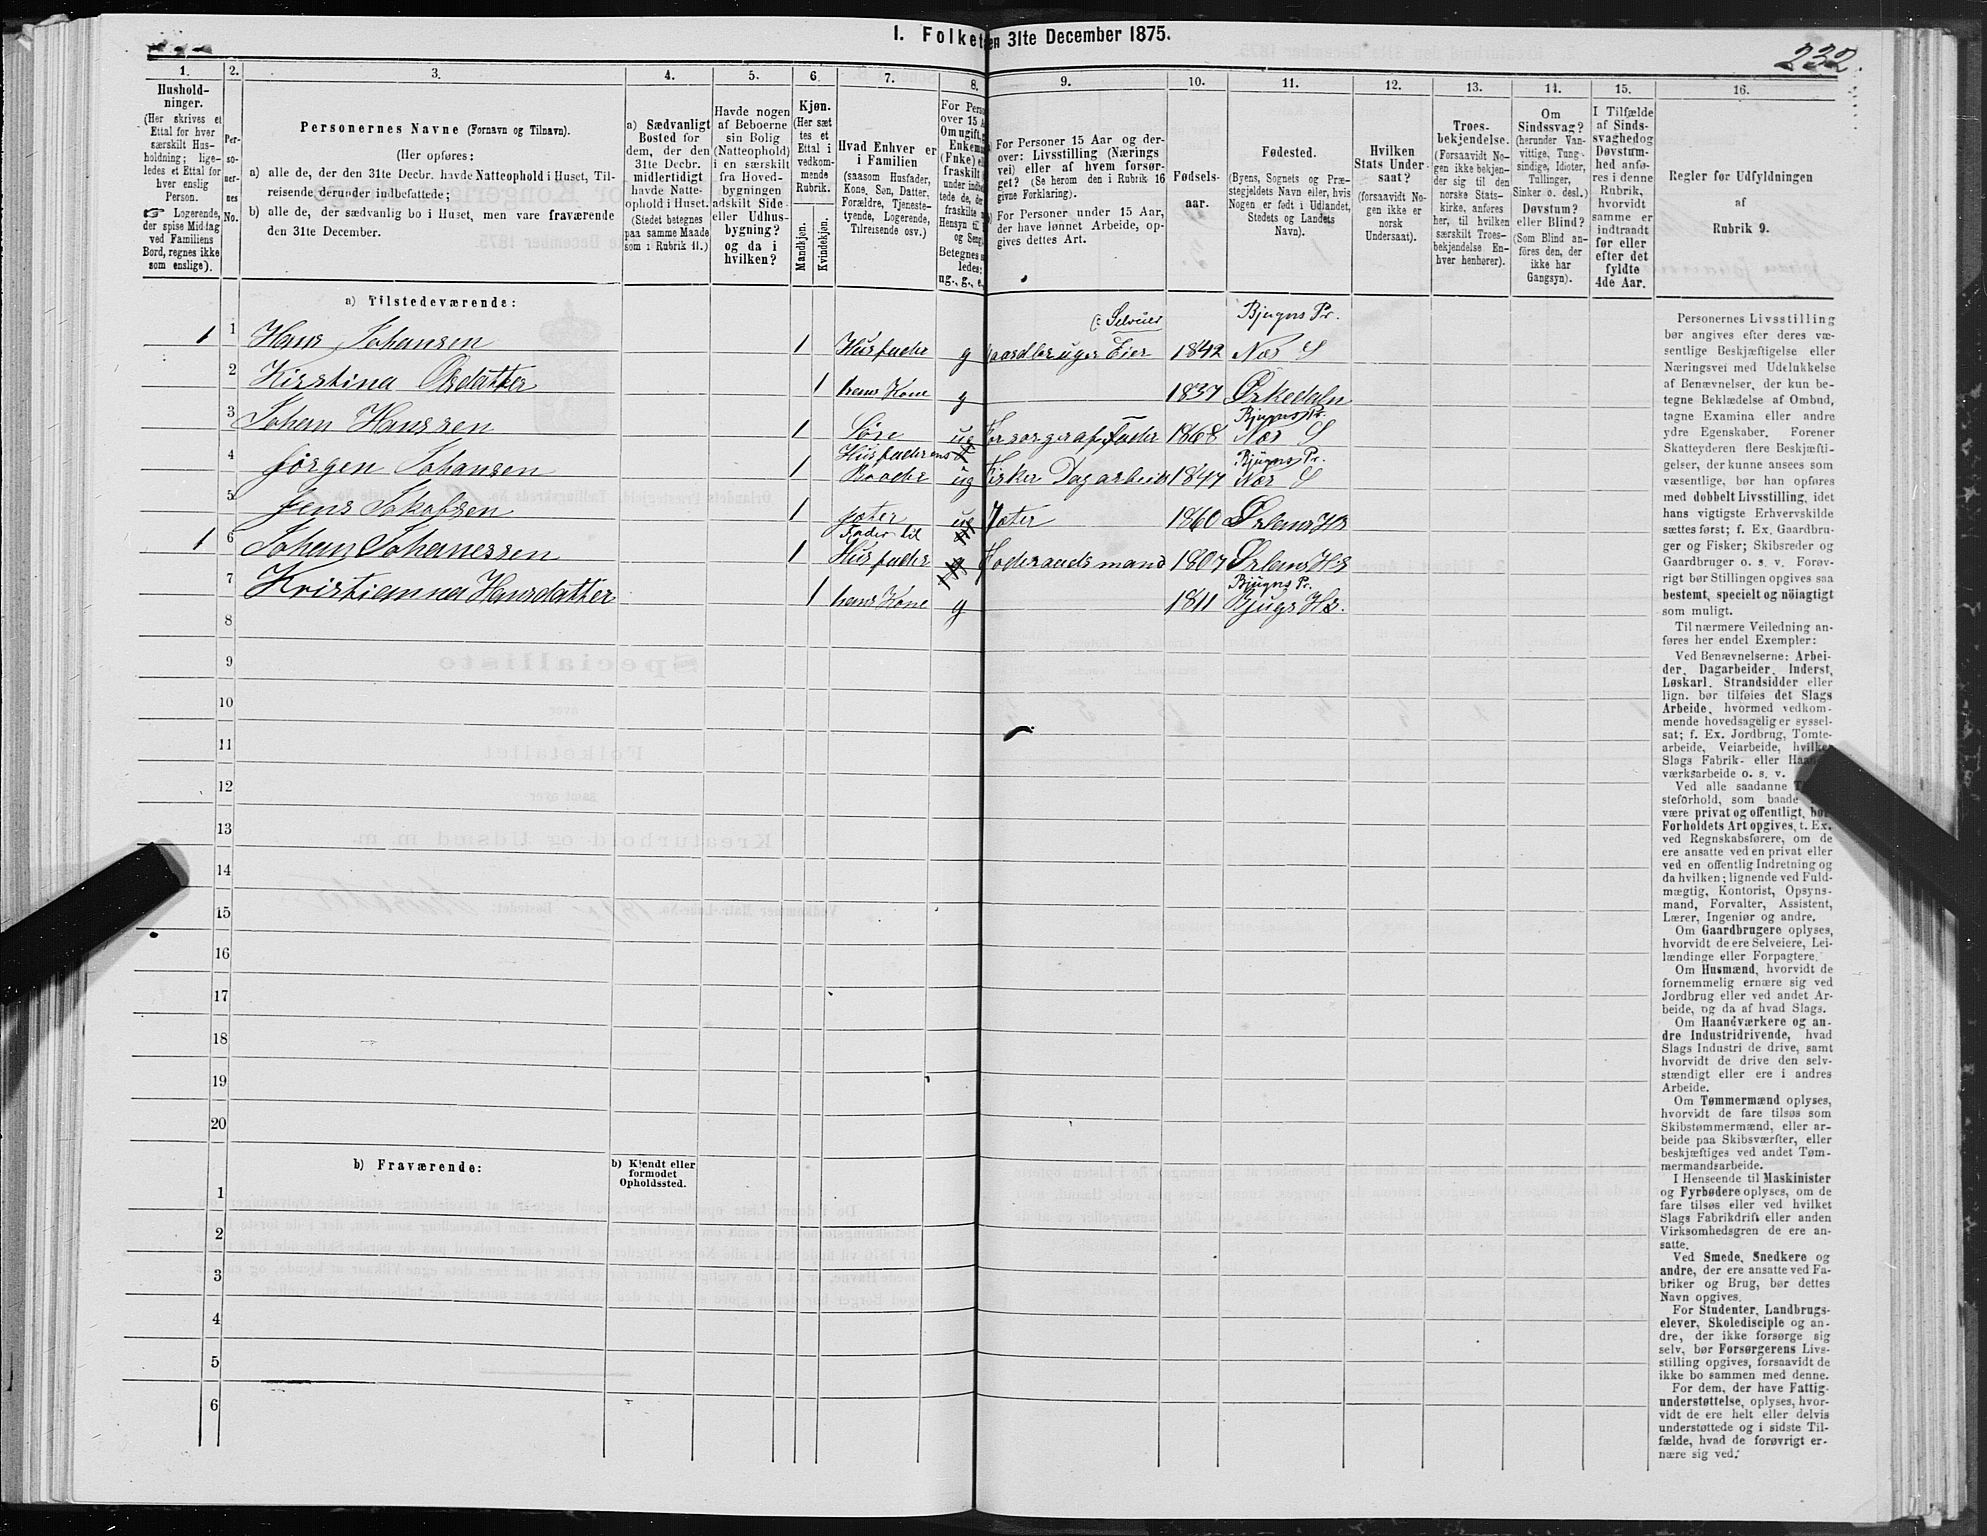 I. Folket
en 31te December 1875.
232.
1.
2.
3.
4.
5.
6.
7.
8.
9.
10.
11.
12.
13.
14.
15.
16.
Hushold-
ninger.
(Her skrives et
Ettal for hver
særskilt Hus-
holdning; lige-
ledes et Ettal for
hver enslig
Person.
☞ Logerende,
der spise Middag
ved Familiens
Bord, regnes ikke
som enslige).
Per-
so-
ner-
nes
No.
Personernes Navne (Fornavn og Tilnavn).
(Her opføres:
a) alle de, der den 31te Decbr. havde Natteophold i Huset, Til-
reisende derunder indbefattede;
b) alle de, der sædvanlig bo i Huset, men vare fraværende
den 31te December.
a) Sædvanligt
Bosted for
dem, der den
31te Decbr.
midlertidigt
havde Natte-
ophold i Huset.
(Stedet betegnes
paa samme Maade
som i Rubrik 11.)
Havde nogen
af Beboerne
sin Bolig
(Natteophold)
i en særskilt
fra Hoved-
bygningen
adskilt Side-
eller Udhus-
bygning?
og da i
hvilken?
Kjøn.
(Her sæt
tes et
Ettal i
vedkom-
mende
Rubrik.
Mandkjøn.
Kvindekjøn.
Hvad Enhver er
i Familien
(saasom Husfader,
Kone, Søn, Datter,
Forældre, Tjeneste-
tyende, Logerende,
Tilreisende osv.)
For Perso
over 15 A
Om ugift,
Enkem
(Fnke) e
fraskilt
under indb
tede de, de
fraskilte
Hensyn til
og Seng
Betegnes
ledes:
ug., g., e.
For Personer 15 Aar og der-
over: Livsstilling (Nærings
vei) eller af hvem forsør-
get? (Se herom den i Rubrik 16
givne Forklaring).
For Personer under 15 Aar,
der have lønnet Arbeide, op-
gives dettes Art.
Fødsels-
aar.
Fødested.
(Byens, Sognets og Præ-
stegjeldets Navn eller, hvis
Nogen er født i Udlandet,
Stedets og Landets
Navn).
Hvilken
Stats Under-
saat?
(forsaavidt No-
gen ikke er
norsk
Undersaat).
Troes-
bekjendelse.
(Forsaavidt No-
gen ikke bekjen-
der sig til den
norske Stats-
kirke, anføres
her, til hvilken
særskilt Troes-
bekjendelse En-
hver henhører).
Om
Sindssvag?
(herunder Van-
vittige, Tung-
sindige, Idioter,
Tullinger,
Sinker o. desl.)
Døvstum?
eller Blind?
(Som Blind an-
føres den, der
ikke har
Gangsyn).
I Tilfælde
af Sinds-
svaghed og
Døvstum-
hed anfø-
res i denne
Rubrik,
hvorvidt
samme er
indtraadt
før eller
efter det
fyldte
4de Aar.
Regler for Udfyldningen
af
Rubrik 9.
a) Tilstedeværende:
(: Selveier
Bjugns Pr.
1 1 Hans Johansen 1 Husfader g Gaardbruger Eier 1842 Næs S
2 Kirstina Olsdatter 1 hans Kone g 1837 Ørkedalen
Bjugns Pr.
3 Johan Hanssen 1 Søn ug Forsørges af Fader 1868 Næs S
Husfaderens Bjugns Pr.
4 Jørgen Johansen 1 Broder ug Fisker Dagarbeid 1847 Næs S
5 Jens Jakobsen 1 Jæter ug Jæter 1860 Ørlens HS
Fader til
1 6 Johan Johanessen 1 Husfader g Foderaadsmand 1807 Ørlens HS
Bjugns Pr.
7 Kristianna Hansdatter 1 hans Kone g 1811 Bjugs HS.
8
9
10
11
12
13
14
15
16
17
18
19
20
b) Fraværende:
b) Kjendt eller
formodet
Opholdssted.
1
2
3
4
5
6
Personernes Livsstilling
bør angives efter deres væ-
sentlige Beskjæftigelse eller
Næringsvei med Udelukkelse
af Benævnelser, der kun be-
tegne Beklædelse af Ombud,
tagne Examina eller andre
ydre Egenskaber. Forener
Skatteyderen flere Beskjæfti-
gelser, der kunne ansees som
væsentlige, bør han opføres
med dobbelt Livsstilling, idet
hans vigtigste Erhvervskilde
sættes først; f. Ex. Gaardbru-
ger og Fisker; Skibsreder og
Gaardbruger o. s. v. Forøv-
rigt bør Stillingen opgives saa
bestemt, specielt og nöiagtigt
som muligt.
Til nærmere Veiledning an-
føres her endel Exempler:
Ved Benævnelserne: Arbei-
der, Dagarbeider, Inderst,
Løskarl, Strandsidder eller
lign. bør tilføies det Slags
Arbeide, hvormed vedkom-
mende hovedsagelig er syssel-
sat; f. Ex. Jordbrug, Tomte-
arbeide, Veiarbeide, hvilket
Slags Fabrik- eller Haand-
værksarbeide o. s. v.
Ved alle saadanne
steforhold, som baade
være privat og offentligt, bør
Forholdets Art opgives, t. Ex.
ved Regnskabsførere, om de
ere ansatte ved en privat eller
ved en offentlig Indretning og
da hvilken; lignende ved Fuld-
mægtig, Kontorist, Opsyns-
mand, Forvalter, Assistent,
Lærer, Ingeniør og andre.
Om Gaardbrugere oplyses,
hvorvidt de ere Selveiere, Lei-
lændinge eller Forpagtere.
Om Husmænd, hvorvidt de
fornemmelig ernære sig ved
Jordbrug eller ved andet Ar-
beide, og da af hvad Slags.
Om Haandværkere og an-
dre Industridrivende, hvad
Slags Industri de drive, samt
hvorvidt de drive den selv-
stændigt eller ere i andres
Arbeide.
Om Tømmermænd oplyses,
hvorvidt de fare tilsøs som
Skibstømmermænd, eller ar-
beide paa Skibsværfter, eller
beskjæftiges ved andet Tøm-
mermandsarbeide.
I Henseende til Maskinister
og Fyrbødere oplyses, om de
fare tilsøs eller ved hvilket
Slags Fabrikdrift eller anden
Virksomhedsgren de ere an-
satte.
Ved Smede, Snedkere og
andre, der ere ansatte ved Fa-
briker og Brug, bør dettes
Navn opgives.
For Studenter, Landbrugs-
elever, Skoledisciple og an-
dre, der ikke forsørge sig
selv, bør Forsørgerens Livs-
stilling opgives, forsaavidt de
ikke bo sammen med denne.
For dem, der have Fattig-
understøttelse, oplyses, hvor-
vidt de ere helt eller delvis
understøttede og i sidste Til-
fælde, hvad de forøvrigt er-
nære sig ved.